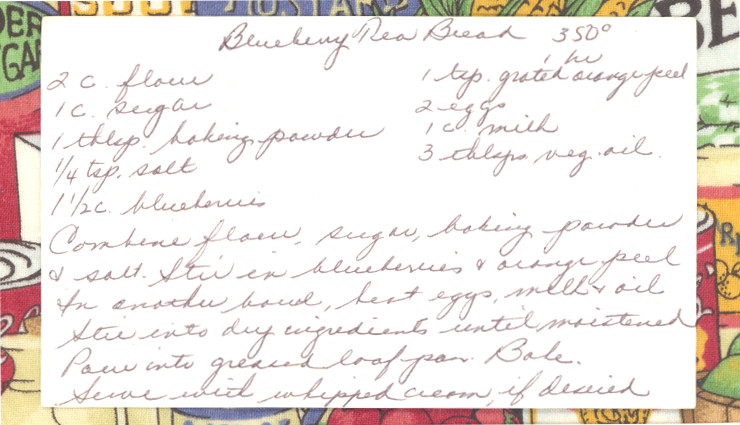 MUSTARD
Blueberry Tea Bread 350°
1 hr
2 c. flour
1 c. sugar
1 tblsp. baking powder
1/4 tsp. salt
1 1/2 c. blueberries
1 tsp. grated orange peel
2 eggs
1 c. milk
3 tblsps veg. oil.
Combine flour, sugar, baking powder
& salt. Stir in blueberries & orange peel
In another bowl, beat eggs, milk & oil
Stir into dry ingredients until moistened
Pour into greased loaf pan. Bake.
Serve with whipped cream, if desired